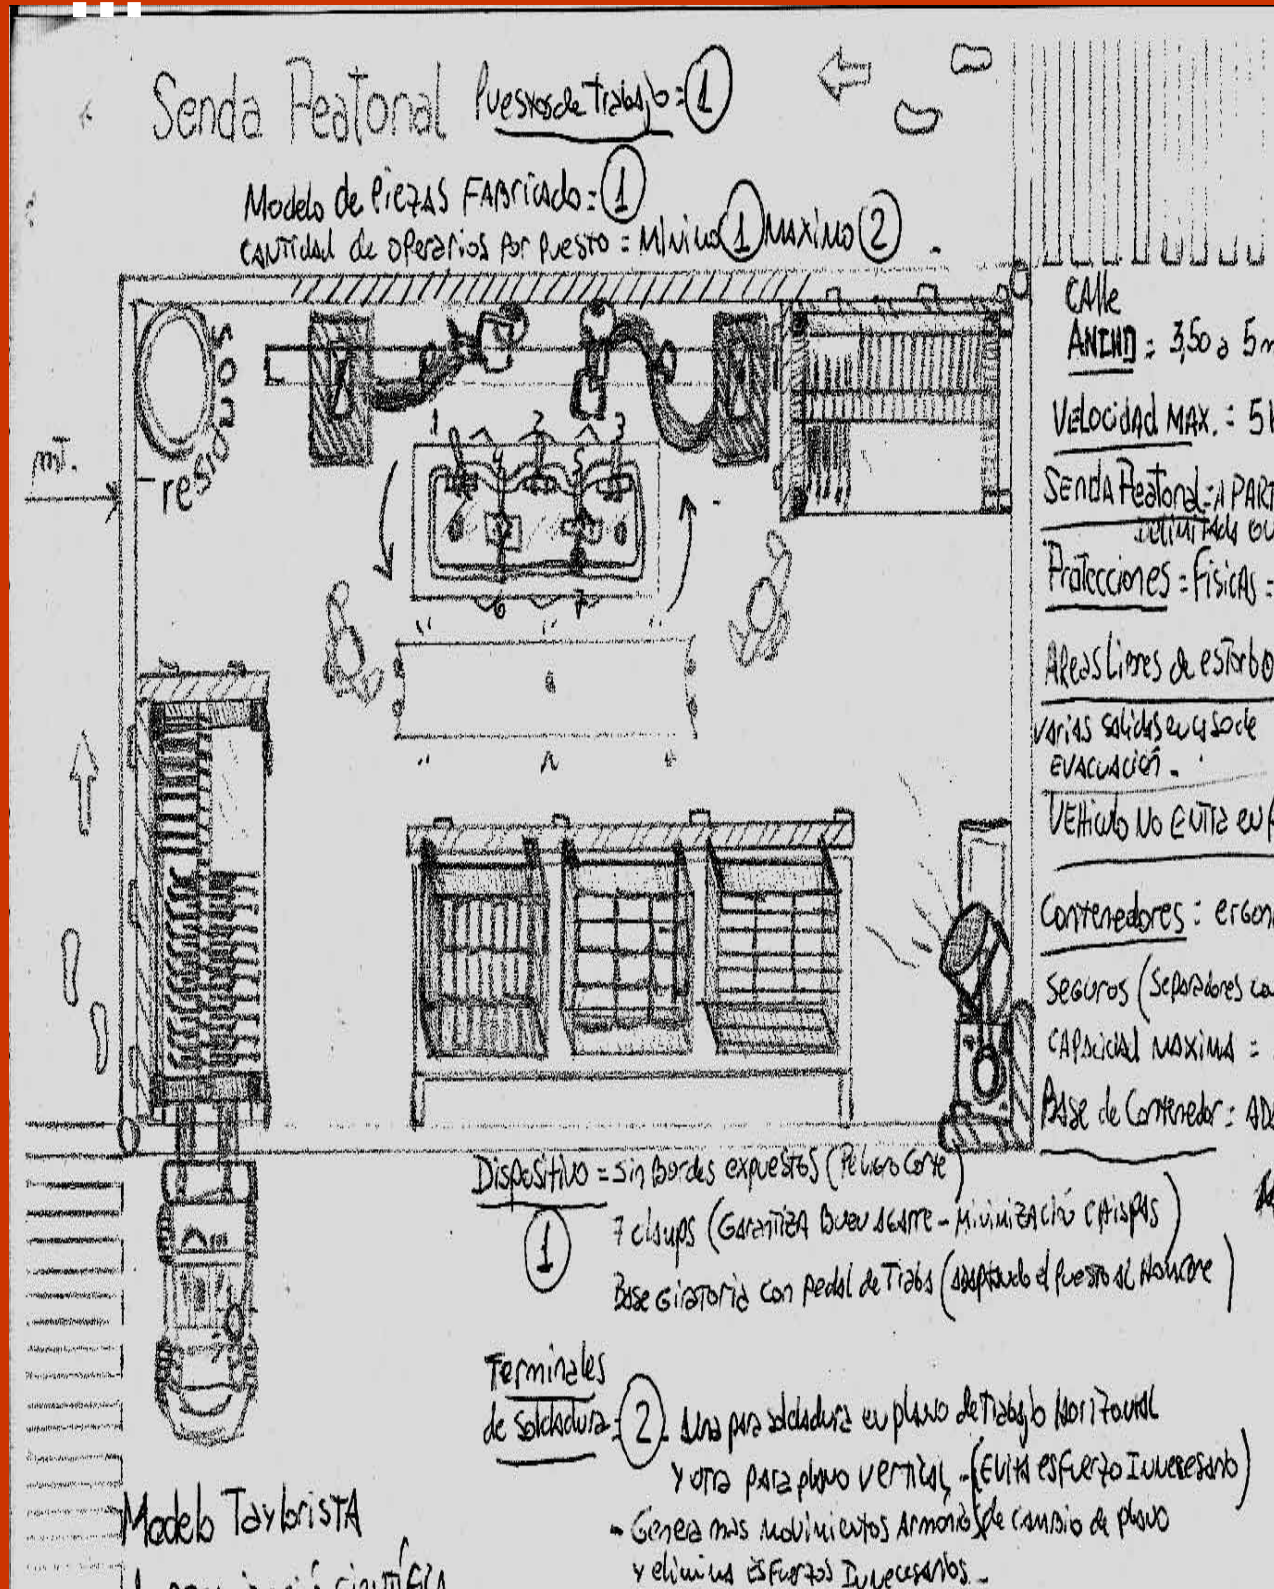 Senda Peatonal Puestos de trabajo = 1
Modelo de PiezAS FABricado = 1
CANTidad de operarios por Puesto = Minimo 1 MAXiMO 2
residuos
mt.
1 2 3
4 5
6 7
CAlle
ANCHO : 3,50 a 5 m
VELOCIDAD MAX. : 5
SENDA Peatonal = A PART
Protecciones = FísicAS =
AReas Libres de estorbo
VARIAS salidas en caso de
EVACUACIÓN -
VEHiculo No ENTRA en
Contenedores : ergon
SEGUROS (Separadores
CAPAcidad MAXIMA =
BAse de Contenedor = AD
Dispositivo = Sin Bordes expuestos (Peligro Corte)
1 7 clamps (GArantiza Buen AGArre - Minimización Chispas)
Base Giratoria con Pedal de Traba (adaptando el Puesto al Hombre)
Terminales
de Soldadura = 2 Una para soldadura en plano de Trabajo Horizontal
y otra para plano Vertical - (Evita esfuerzo Innecesario)
- Genera mas movimientos Armonio de cambio de plano
y elimina esfuerzos Innecesarios -
Modelo TaylorisTA